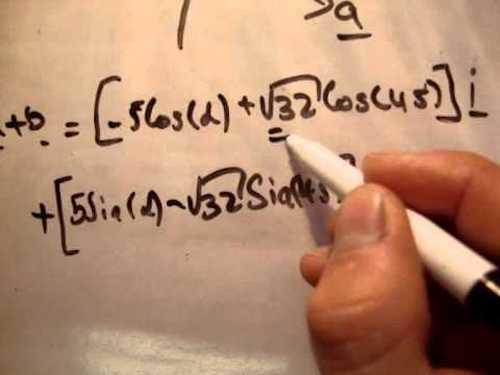 a
+b = [-5Cos(α) + √32 Cos(45)] i
+ [5Sin(α) - √32 Sin(45)